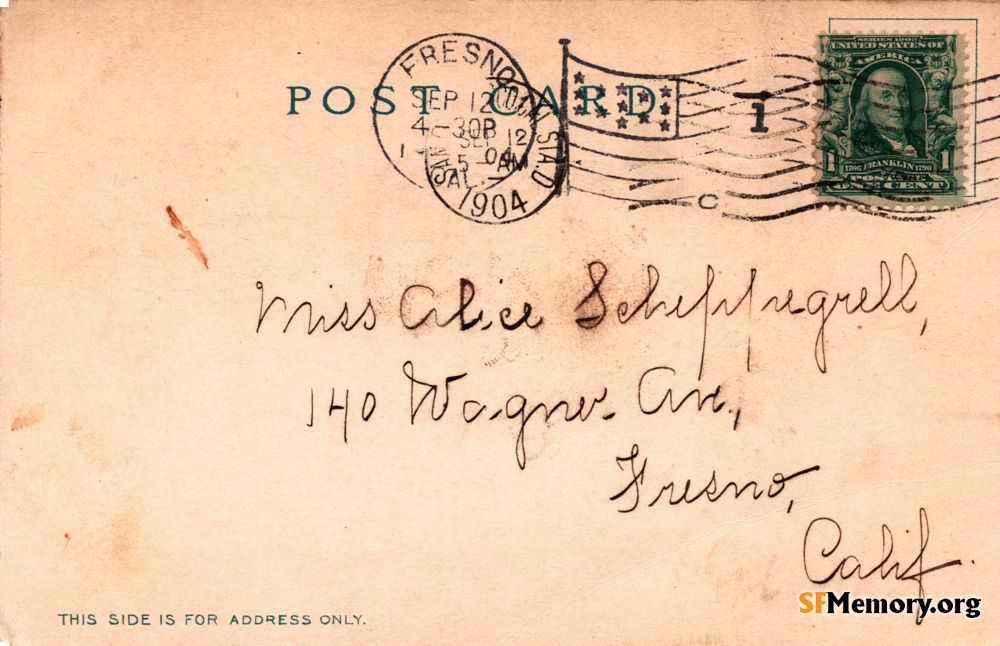 POST CARD
FRESNO
SEP 12
4-30P
SEP 12
5-AM
1904
1
C
SERIES 1902
UNITED STATES OF
AMERICA
1 1706 FRANKLIN 1790 1
POSTAGE
ONE CENT
Miss Alice Scheppregrell,
140 Wagner Av.,
Fresno,
Calif.
THIS SIDE IS FOR ADDRESS ONLY.
SFMemory.org